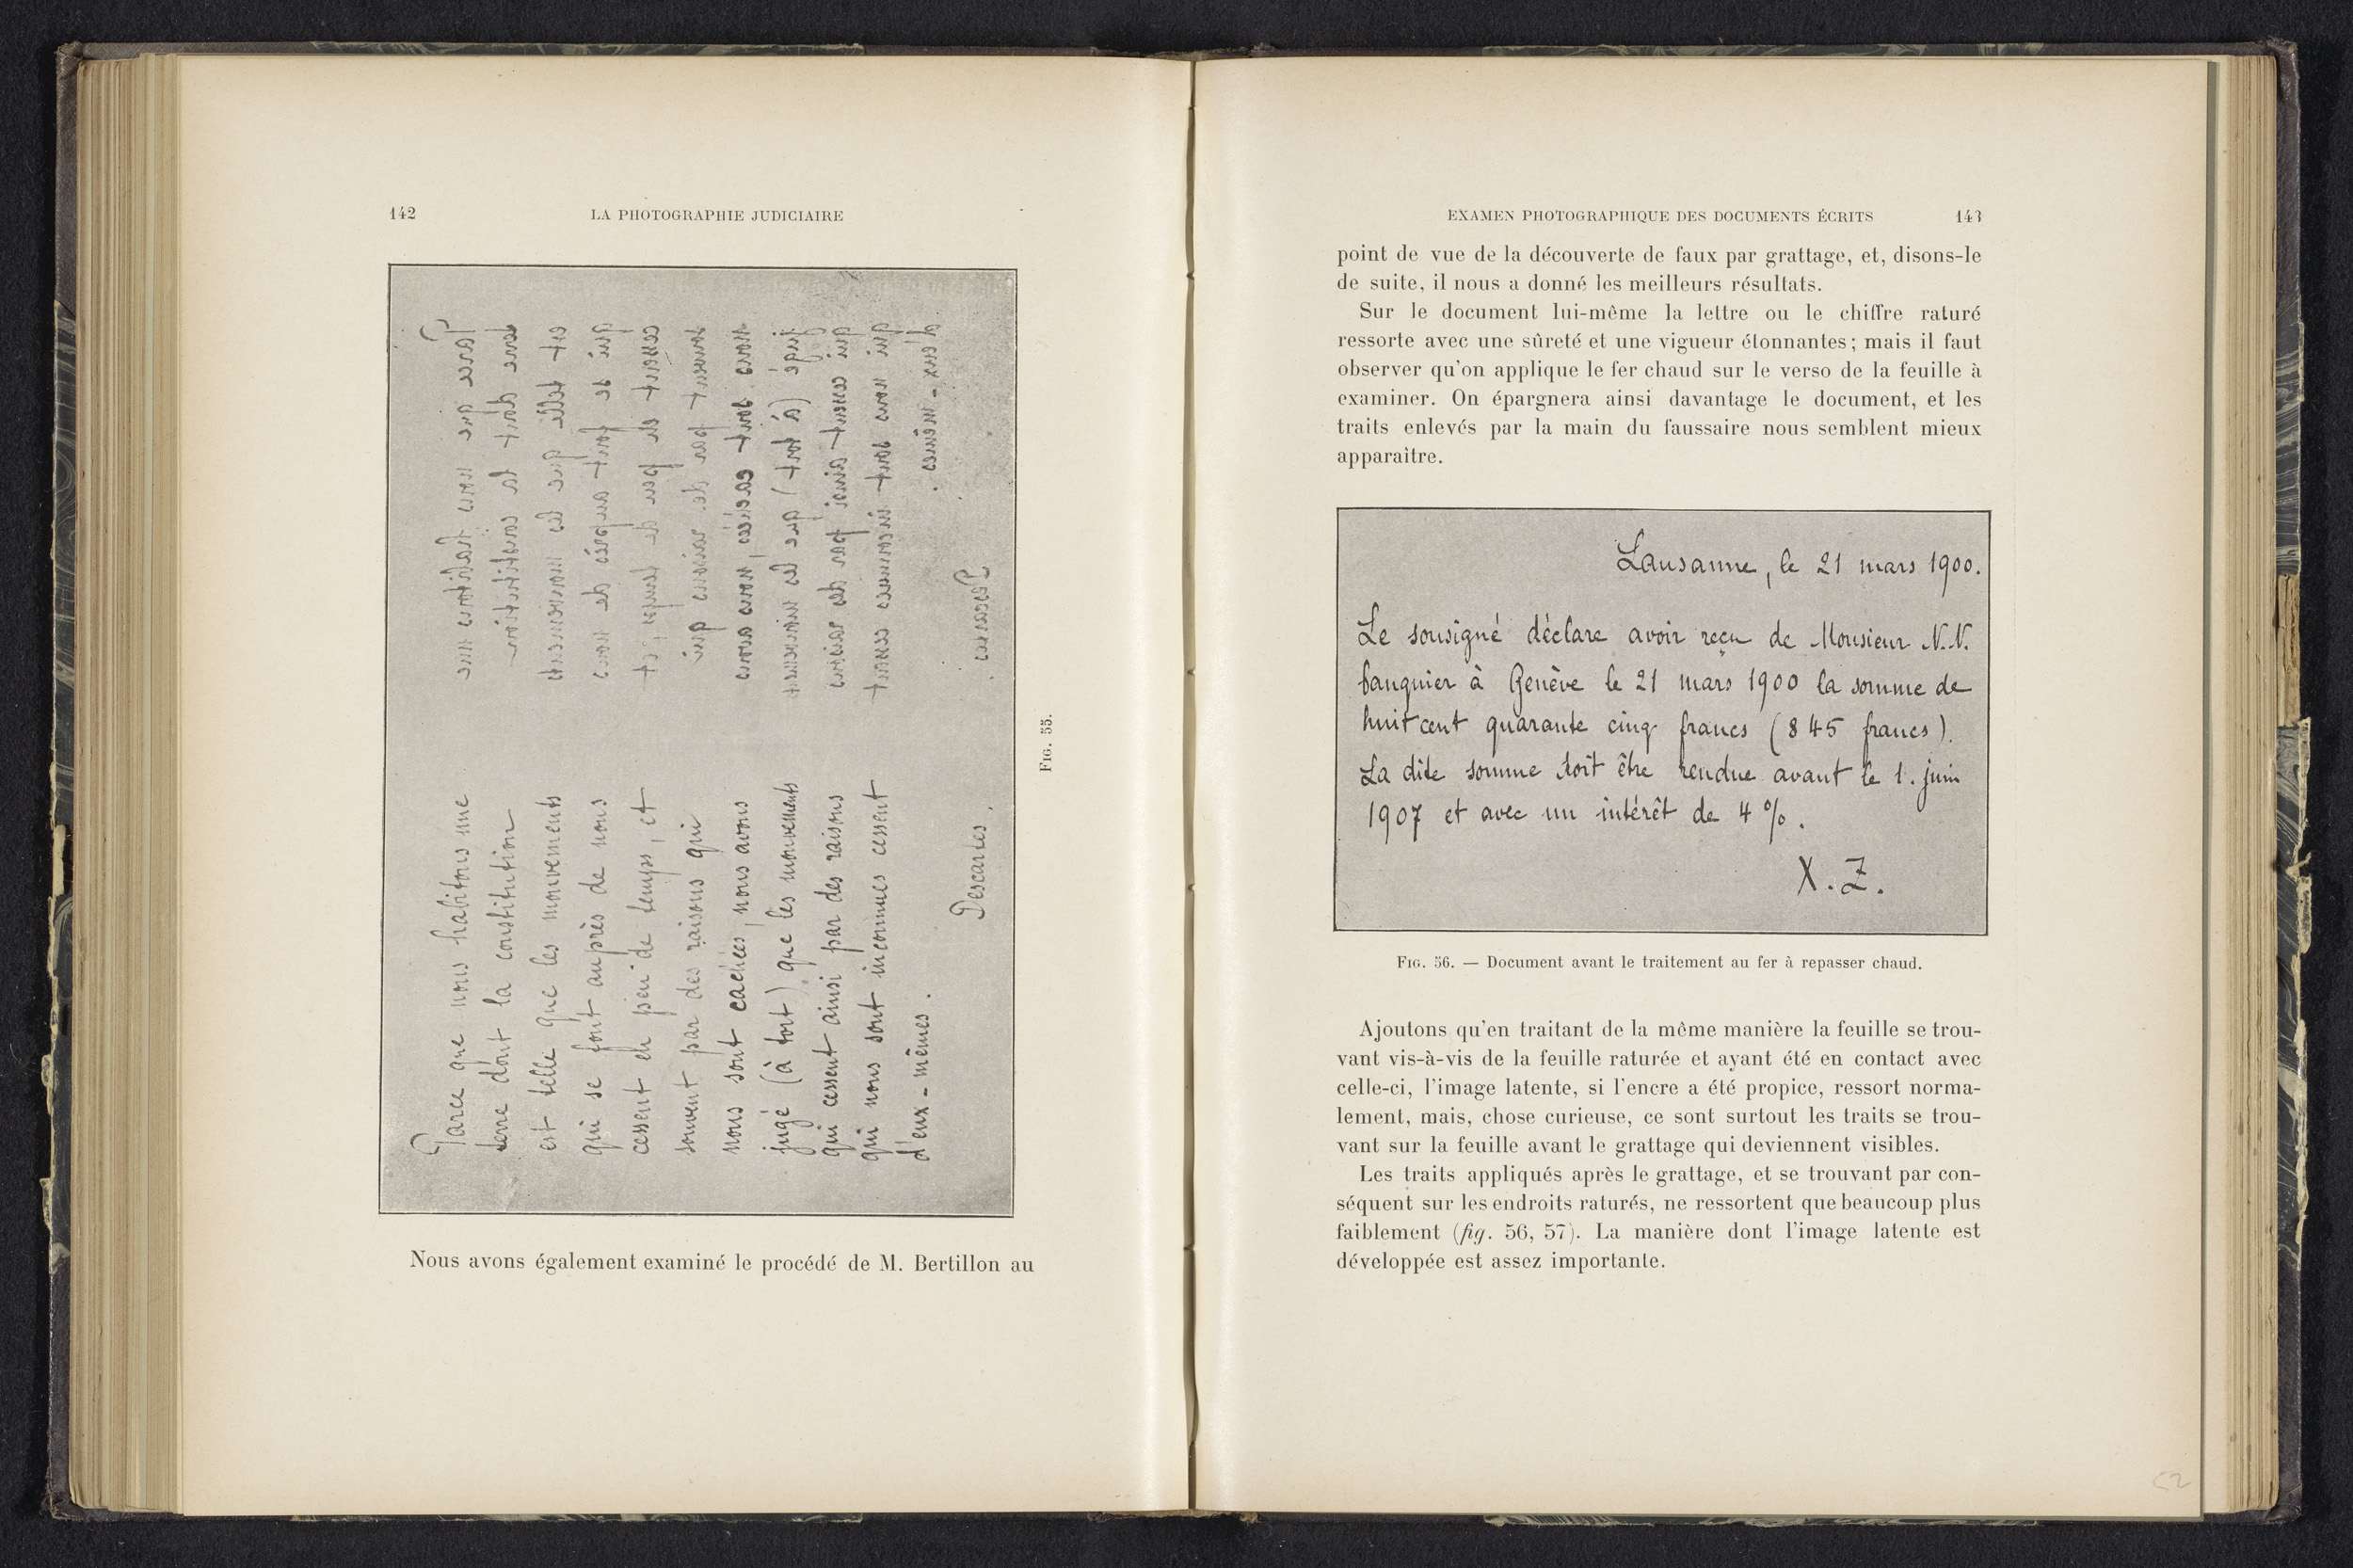 142
LA PHOTOGRAPHIE JUDICIAIRE
Parce que nous habitons une
terre dont la constitution
est telle que les mouvements
qui se font auprès de nous
cessent en peu de temps, et
souvent par des raisons qui
nous sont cachées, nous avons
jugé (à tort) que les mouvements
qui cessent ainsi par des raisons
qui nous sont inconnues cessent
d'eux-mêmes.
Descartes.
Parce que nous habitons une
terre dont la constitution
est telle que les mouvements
qui se font auprès de nous
cessent en peu de temps, et
souvent par des raisons qui
nous sont cachées, nous avons
jugé (à tort) que les mouvements
qui cessent ainsi par des raisons
qui nous sont inconnues cessent
d'eux-mêmes.
Descartes.
Fig. 55.
Nous avons également examiné le procédé de M. Bertillon au
EXAMEN PHOTOGRAPHIQUE DES DOCUMENTS ÉCRITS
143
point de vue de la découverte de faux par grattage, et, disons-le
de suite, il nous a donné les meilleurs résultats.
Sur le document lui-même la lettre ou le chiffre raturé
ressorte avec une sûreté et une vigueur étonnantes; mais il faut
observer qu'on applique le fer chaud sur le verso de la feuille à
examiner. On épargnera ainsi davantage le document, et les
traits enlevés par la main du faussaire nous semblent mieux
apparaître.
Lausanne, le 21 mars 1900.
Le sousigné déclare avoir reçu de Monsieur N.N.
banquier à Genève le 21 mars 1900 la somme de
huit cent quarante cinq francs (845 francs).
La dite somme doit être rendue avant le 1. juin
1907 et avec un intérêt de 4 %.
X.Z.
Fig. 56. — Document avant le traitement au fer à repasser chaud.
Ajoutons qu'en traitant de la même manière la feuille se trou-
vant vis-à-vis de la feuille raturée et ayant été en contact avec
celle-ci, l'image latente, si l'encre a été propice, ressort norma-
lement, mais, chose curieuse, ce sont surtout les traits se trou-
vant sur la feuille avant le grattage qui deviennent visibles.
Les traits appliqués après le grattage, et se trouvant par con-
séquent sur les endroits raturés, ne ressortent que beaucoup plus
faiblement (fig. 56, 57). La manière dont l'image latente est
développée est assez importante.